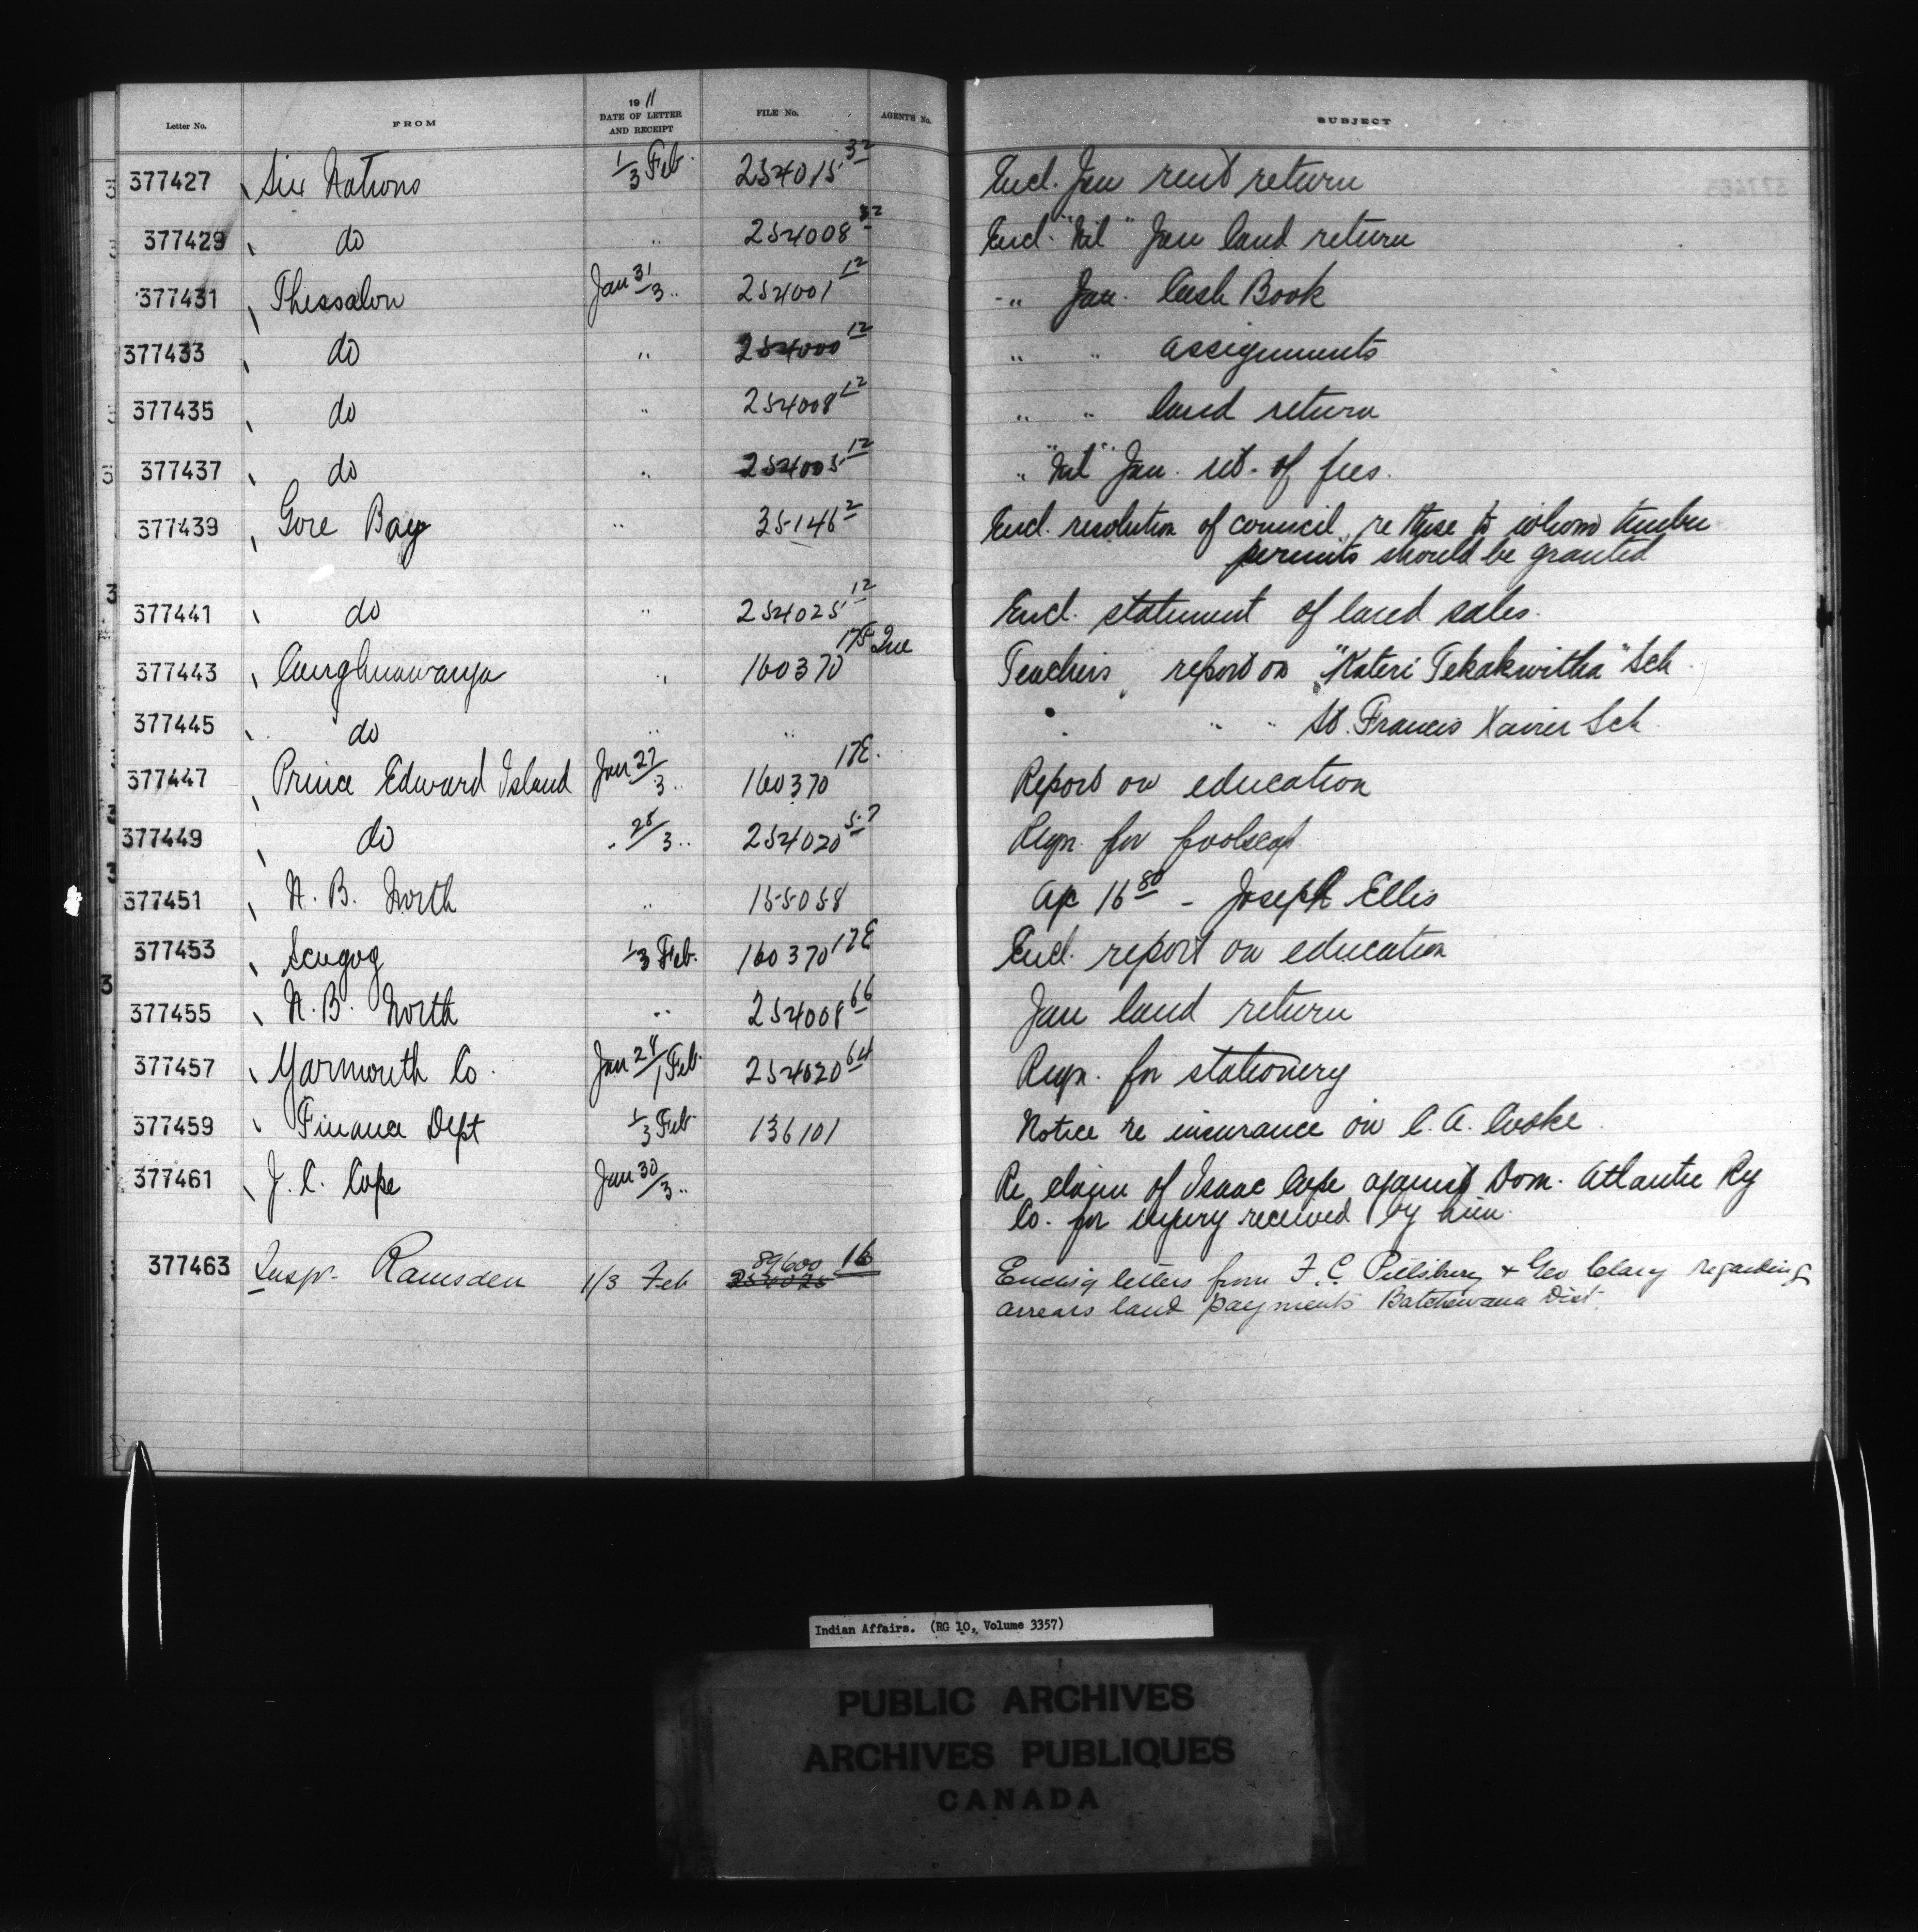 Letter No. FROM 1911 DATE OF LETTER AND RECEIPT FILE No. AGENTS No. SUBJECT
377427 Six Nations 1/3 Feb. 254015 32 Encl. Jan rent return
377429 do " 254008 32 Encl. "Nil" Jan land return
377431 Thessalon Jan 31/3 " 254001 12 " Jan. Cash Book
377433 do " 254000 12 " " assignments
377435 do " 254008 12 " " land return
377437 do " 254005 12 " "Nil" Jan. ret. of fees.
377439 Gore Bay " 35146 2 Encl. resolution of council re those to whom timber
permits should be granted
377441 do " 254025 12 Encl. statement of land sales.
377443 Caughnawaga " 160370 17E Que Teachers report on "Kateri Tekakwitha" Sch.
377445 do " " " " St. Francis Xavier Sch.
377447 Prince Edward Island Jan 27/3 " 160370 17E. Report on education
377449 do " 28/3 " 254020 57 Reqn. for foolscap
377451 N. B. North " 155058 a/c 16 80 - Joseph Ellis
377453 Scugog 1/3 Feb. 160370 17E Encl. report on education
377455 N. B. North " 254008 66 Jan land return
377457 Yarmouth Co. Jan 28/1 Feb. 254020 64 Reqn. for stationery
377459 Finance Dept 1/3 Feb 136101 Notice re insurance on C. A. Cooke.
377461 J. C. Cope Jan 30/3 " Re claim of Isaac Cope against Dom. Atlantic Ry
Co. for injury received by him.
377463 Inspr. Ramsden 1/3 Feb 89600 16 254025 Enclsig letters from F. C. Pillsbury & Geo Clary regarding
arrears land payments Batchewana Dist.
Indian Affairs. (RG 10, Volume 3357)
PUBLIC ARCHIVES
ARCHIVES PUBLIQUES
CANADA